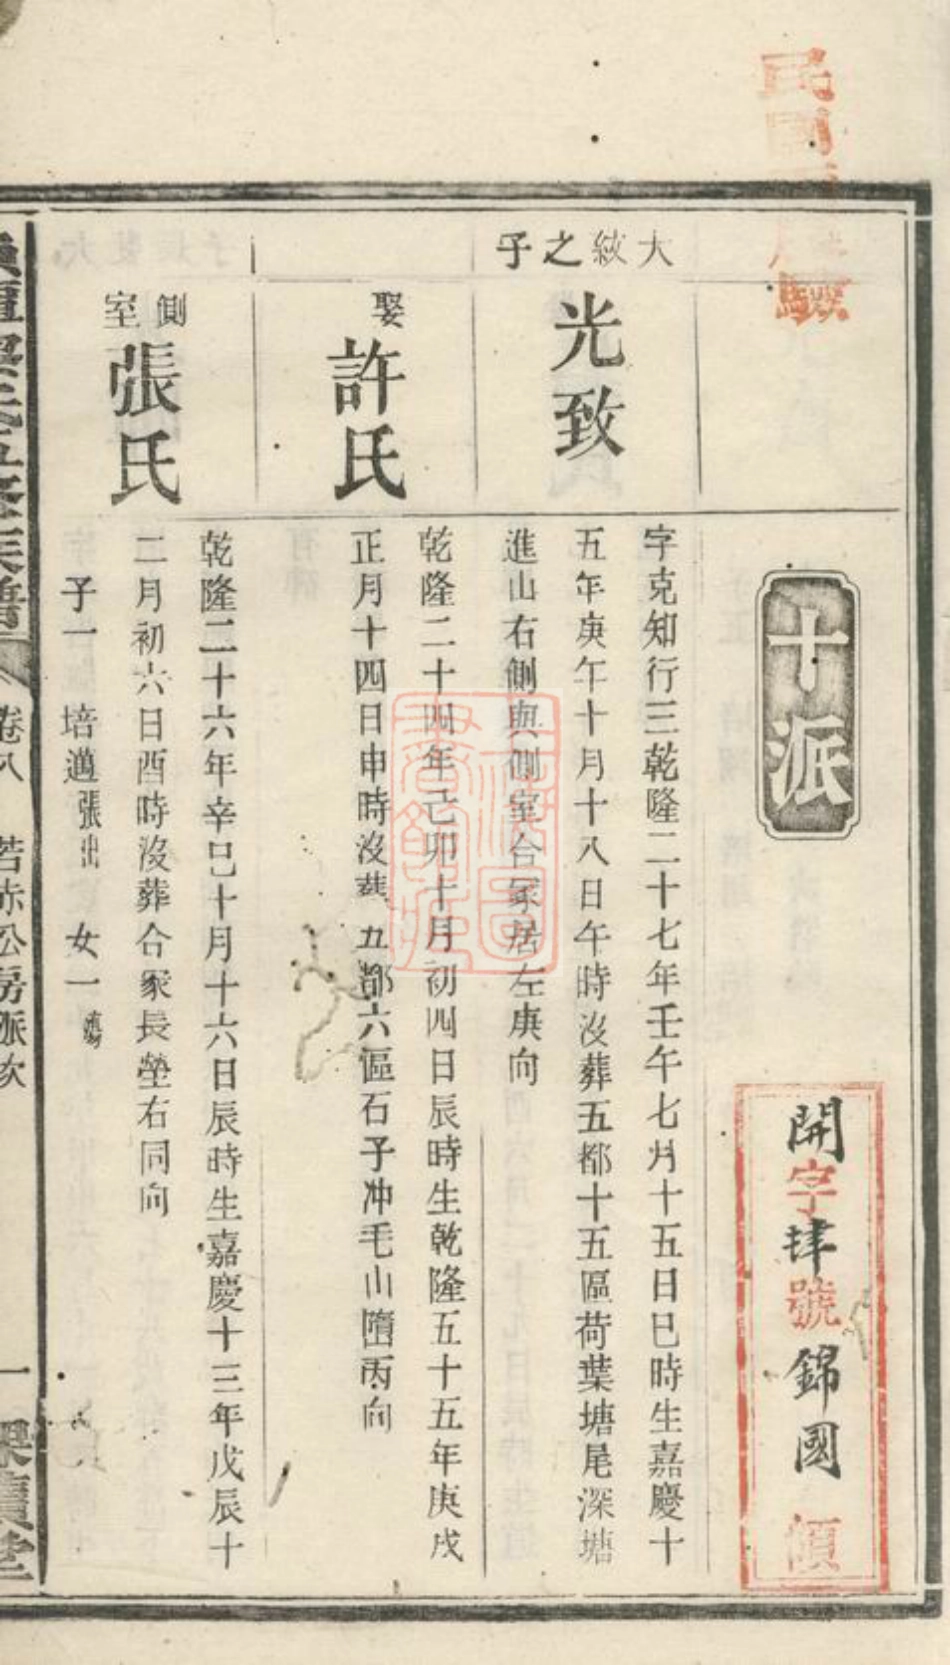 十派
開字肆號錦國領
大紋之子
光致
字克知行三乾隆二十七年壬午七月十五日巳時生嘉慶十
五年庚午十月十八日午時沒葬五都十五區荷葉塘尾深塘
進山右側與側室合冢居左庚向
娶
許氏
乾隆二十四年己卯十月初四日辰時生乾隆五十五年庚戌
正月十四日申時沒葬五都六區石子冲毛山墮丙向
側室
張氏
乾隆二十六年辛巳十月十六日辰時生嘉慶十三年戊辰十
二月初六日酉時沒葬合冢長塋右同向
子一 培邁張出 女一
五修族譜 卷八 若赤公房派次 一